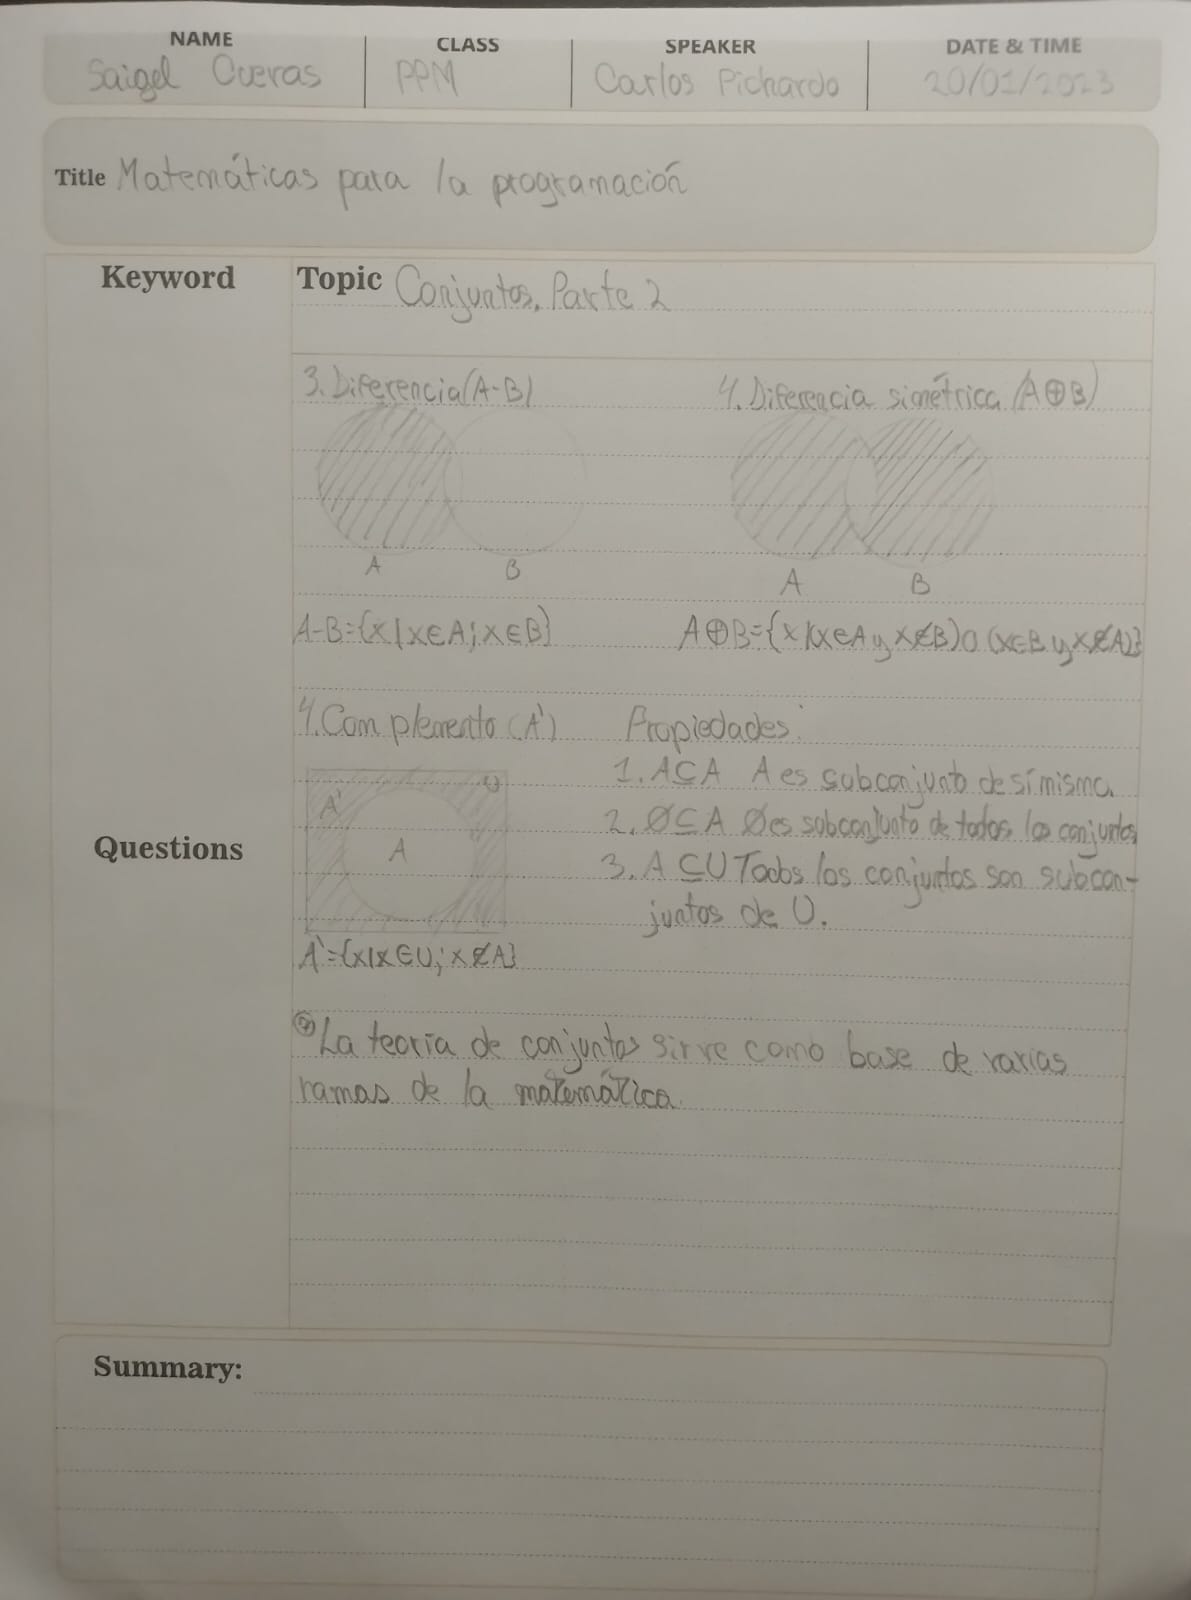 NAME CLASS SPEAKER DATE & TIME
Saigel Cuevas PPM Carlos Pichardo 20/01/2023
Title Matemáticas para la programación
Keyword Topic Conjuntos, Parte 2
3. Diferencia (A-B) 4. Diferencia simétrica (A⊕B)
A B A B
A-B={x|x∈A; x∈B} A⊕B={x|(x∈A y x∉B) o (x∈B y x∉A)}
4. Complemento (A') Propiedades:
1. A⊆A A es subconjunto de sí misma.
U
A'
2. Ø⊆A Ø es subconjunto de todos los conjuntos
A
Questions
3. A⊆U Todos los conjuntos son subcon-
juntos de U.
A'={x|x∈U; x∉A}
La teoría de conjuntos sirve como base de varias
ramas de la matemática.
Summary: